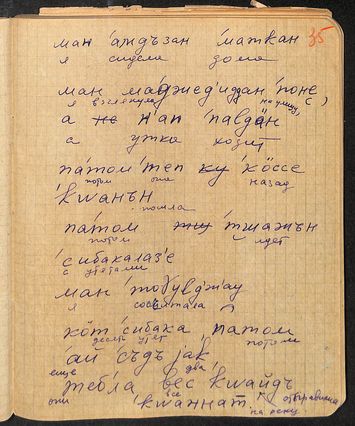 35
ман 'аждъзан 'маткан
я сидела дома
ман ма́джед'идан 'поне
я взглянула на улицу,
а не н'ап 'павдӓн
а утка ходит
па́том 'теп ку 'кӧссе
потом она назад
'кwанън
пошла
па́том 'тшажън
потом идет
'сибакалаз'е
с утятами
ман 'тоӷувджау
я сосчитала
кӧт 'сибака, па́том
десять утят потом
'ай съдъ jак
еще два
теб'ла вес 'кwайдъ
они все
'кwаннат. отправились
на реку